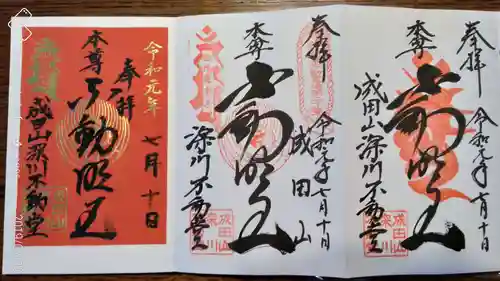 奉拝
令和元年七月十日
本尊
不動明王
成田山深川不動堂
成田山
深川
奉拝
令和元年七月十日
成田山
本尊
不動明王
深川不動堂
成田山
深川
令和元年
七月十日
奉拝
本尊
不動明王
成田山深川不動堂